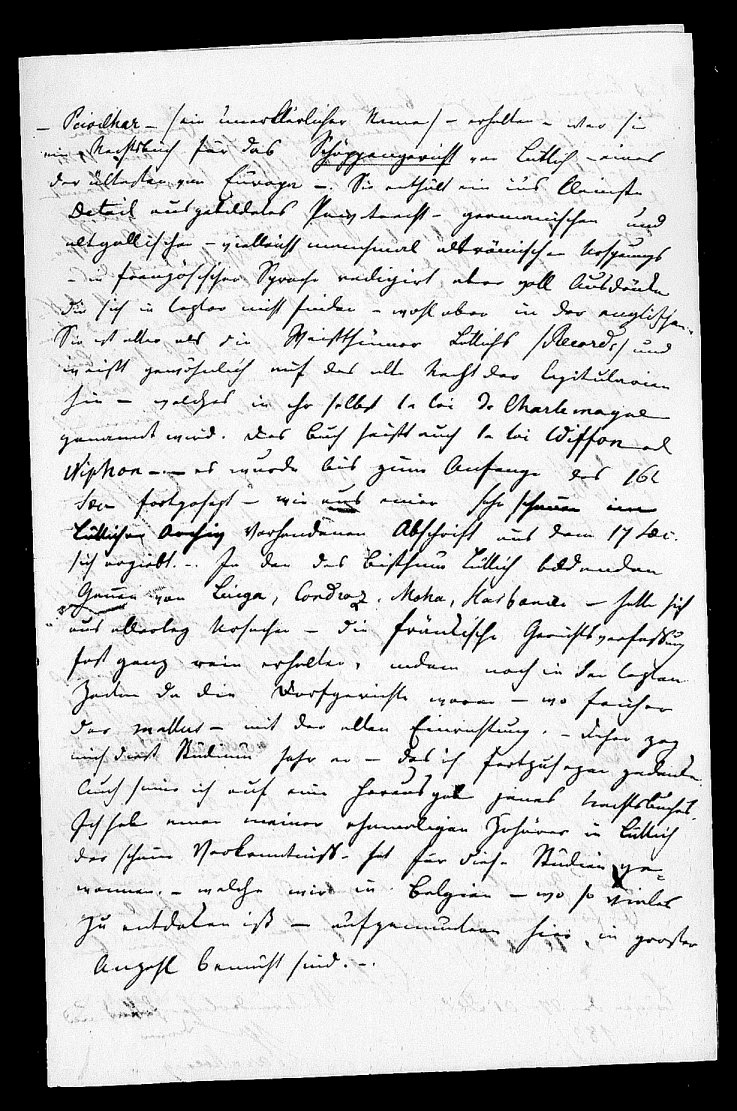 – Pawilhar – (ein unerklärlicher Name) – erhalten – war sie
ein Rechtsbuch für das Schöppengericht von Lüttich – eines
der ältesten von Europa –. Sie enthält ein ins kleinste
Detail ausgebildetes Privatrecht – germanischen und
altgallischen – vielleicht manchmal altrömischen Ursprungs
– in französischer Sprache redigirt aber voll Ausdrücke
die sich in letzter nicht finden – wohl aber in der englischen.
Sie ist älter als die Weisthümer Lüttichs (Records) und
weist gewöhnlich auf das alte Recht der Capitularien
hin – welches in ihr selbst la loi de Charlemagne
genannt wird. Das Buch heißt auch la loi Wiffon od
Niphon – es wurde bis zum Anfange des 16t
Sec fortgesetzt – wie aus einer sehr schönen im
Lütticher Archiv vorhandenen Abschrift aus dem 17 Sec.
sich ergiebt. – In den das Bisthum Lüttich bildenden
Gauen von Liuga, Condroz, Moha, Hasbanie – hatte sich
aus allerley Ursachen – die fränkische Gerichtsverfassung
fast ganz rein erhalten, indem noch in den letzten
Zeiten da die Dorfgerichte waren – wo früher
der mallus – mit der alten Einrichtung. – Daher zog
mich dies Studium sehr an – das ich fortzusetzen gedenke.
Auch sinne ich auf eine Herausgabe jenes Rechtsbuches.
Ich habe einen meiner ehemaligen Zuhörer in Lüttich
der schöne Vorkenntniss hat für diese Studien ge=
wonnen, – welche wir in Belgien – wo so vieles
zu entdeken ist – aufzumuntern hier, in großer
Anzahl bemüht sind. –